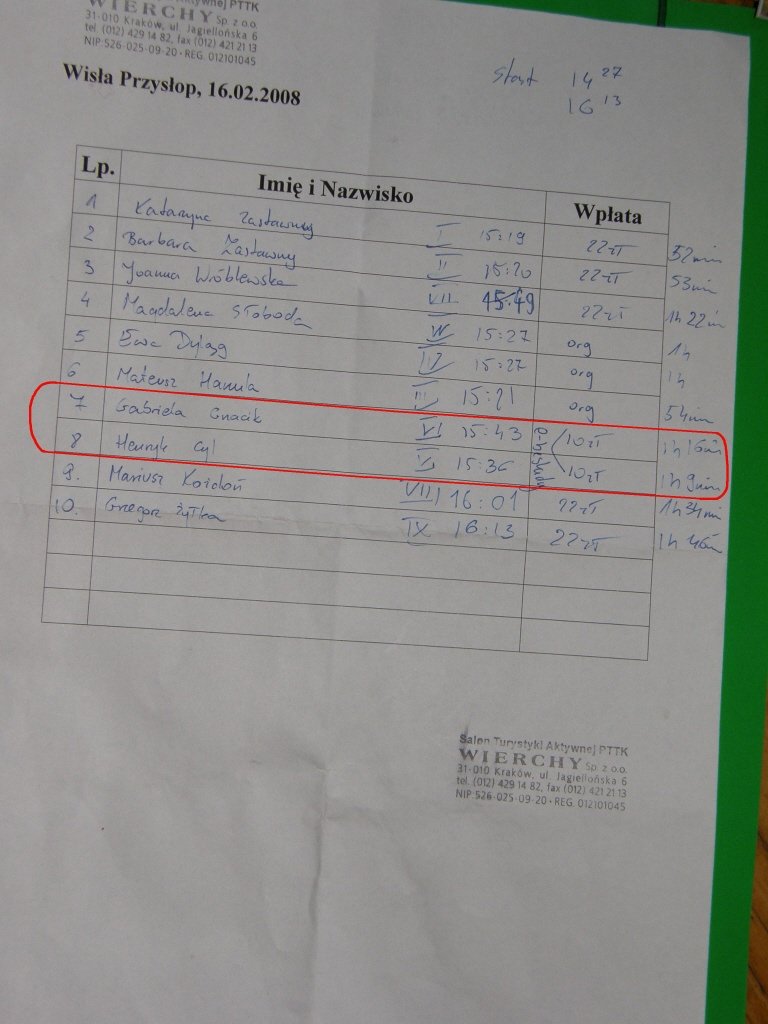 Aktywnej PTTK
WIERCHY Sp. z o.o.
31-010 Kraków, ul. Jagiellońska 6
tel. (012) 429 14 82, fax (012) 421 21 13
NIP 526-025-09-20 - REG. 012101045
Wisła Przysłop, 16.02.2008
Start 14 27
16 13
Lp. Imię i Nazwisko Wpłata
1 Katarzyna Zastawny I 15:19 22zł 52min
2 Barbara Zastawny II 15:20 22zł 53min
3 Joanna Wróblewska VII 15:49 22zł 1h 22min
4 Magdalena Słoboda IV 15:27 org 1h
5 Ewa Dyląg IV 15:27 org 1h
6 Mateusz Hamula III 15:21 org 54min
7 Gabriela Gnacik VI 15:43 e-beskidy 10zł 1h 16min
8 Henryk Cyl V 15:36 10zł 1h 9min
9. Mariusz Kożdoń VIII 16:01 22zł 1h 34min
10. Grzegorz Żytka IX 16:13 22zł 1h 46m
Salon Turystyki Aktywnej PTTK
WIERCHY Sp. z o.o.
31-010 Kraków, ul. Jagiellońska 6
tel. (012) 429 14 82, fax (012) 421 21 13
NIP 526-025-09-20 - REG. 012101045